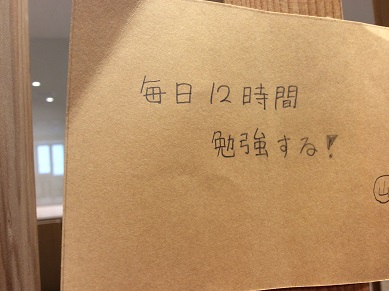 毎日12時間
勉強する!
山